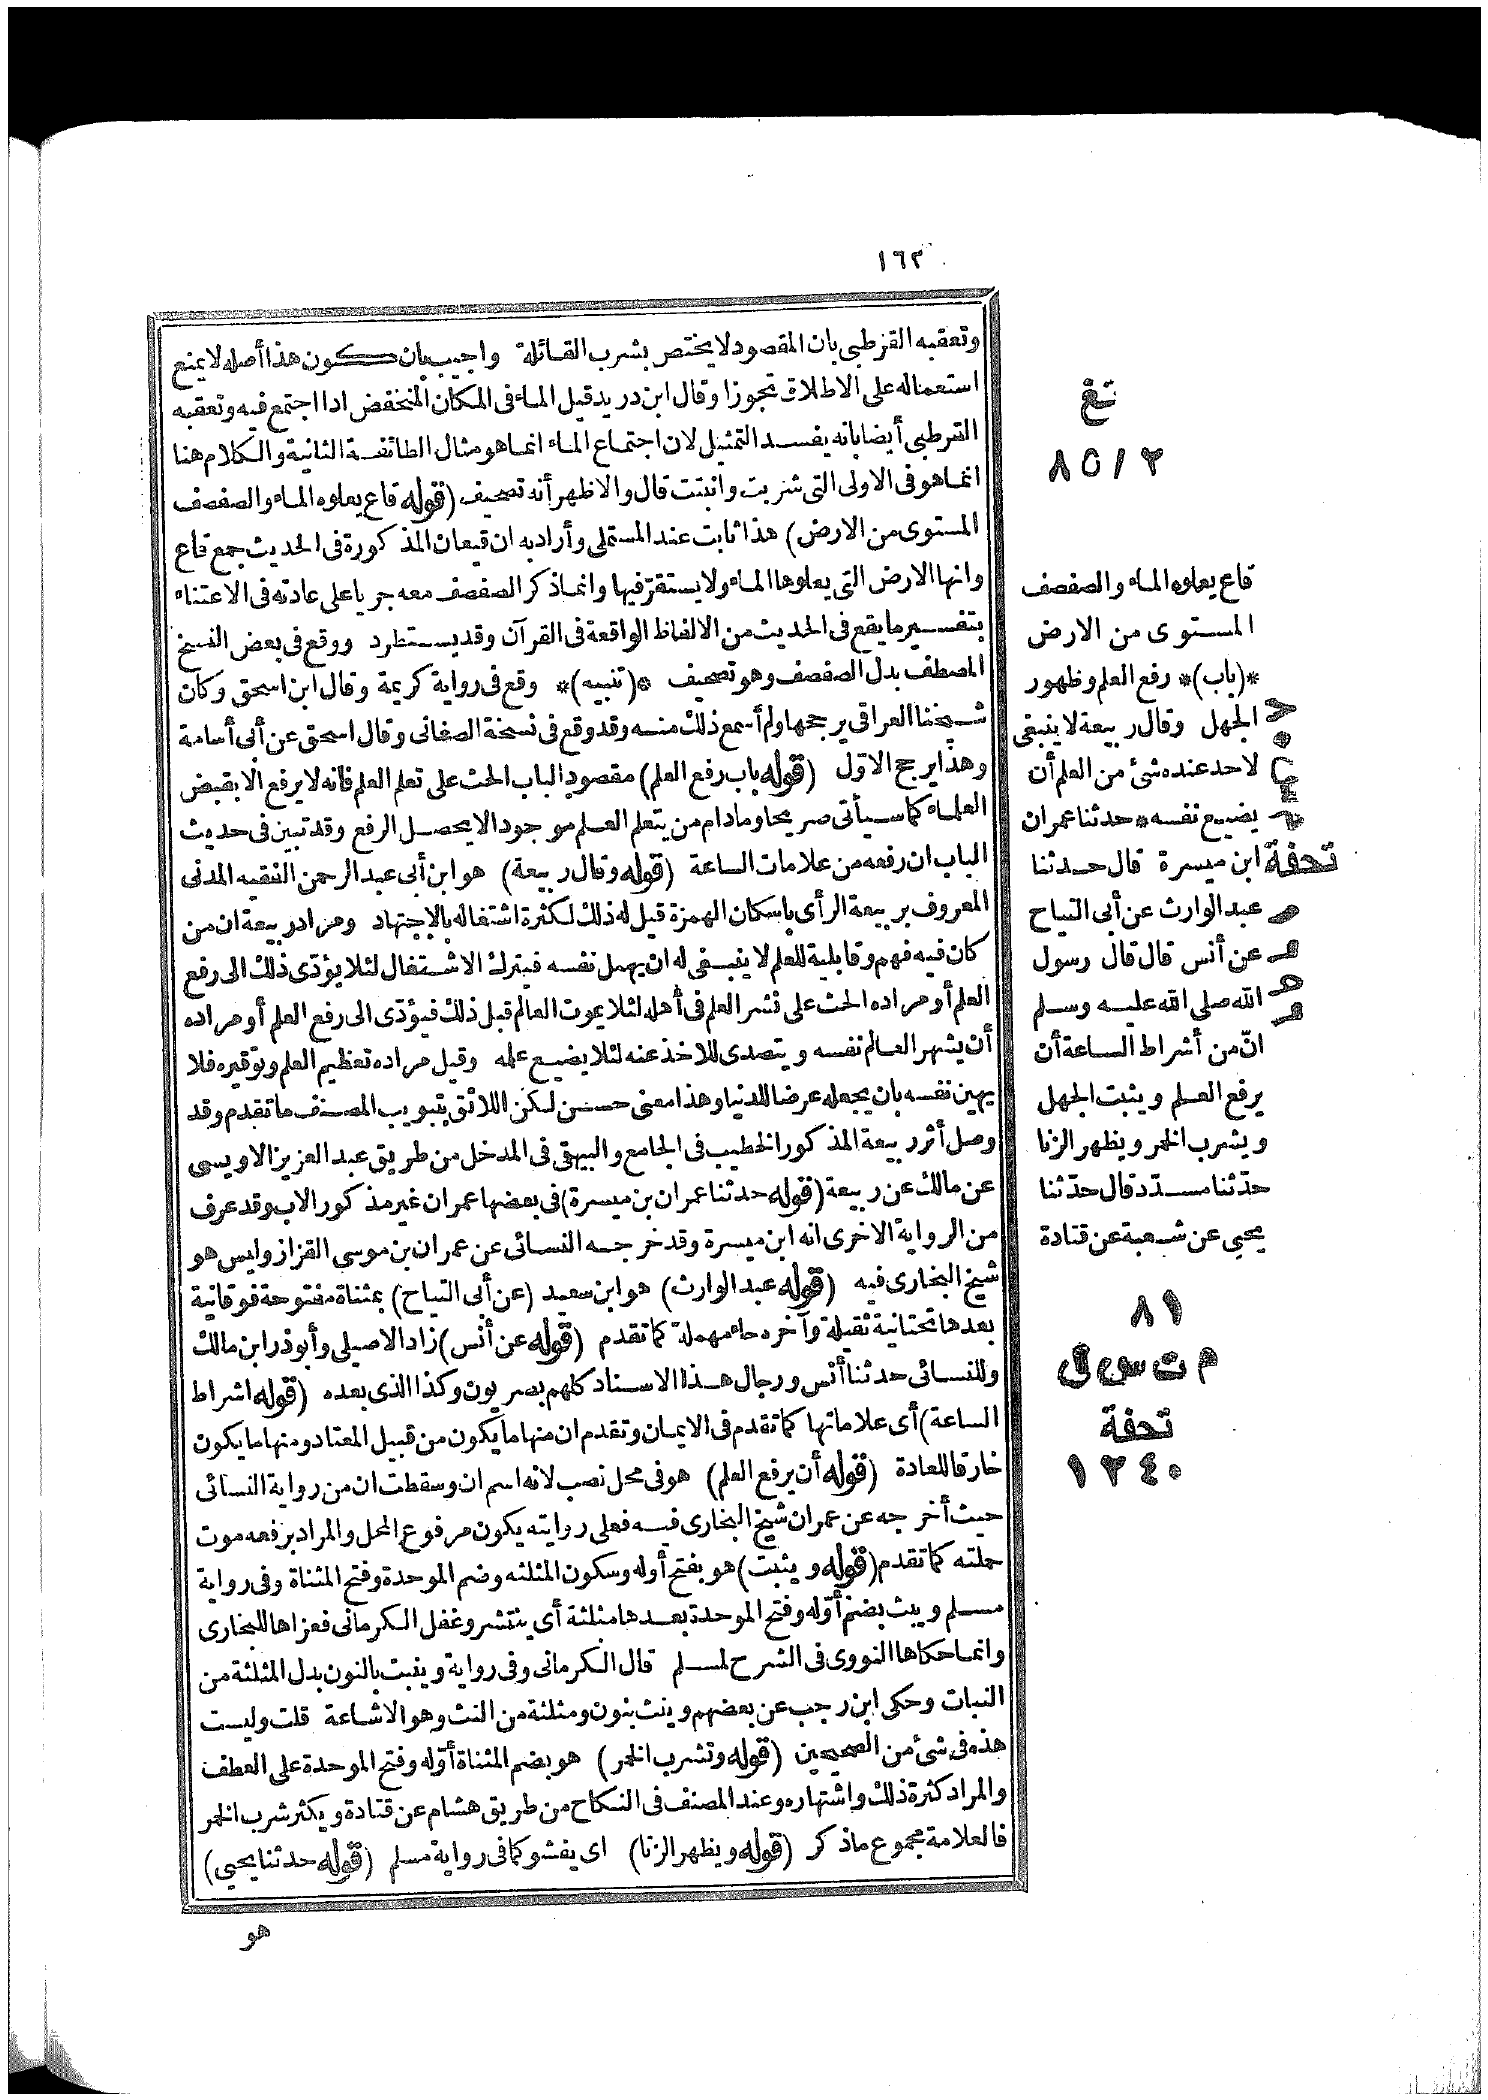 ١٦٢
وتعقبه القرطبي بان المقصود لا يختص بشرب القائلة واجيب بان كون هذا أصله لا يمنع
استعماله على الاطلاق تجوزا وقال ابن دريد قيل الماء فى المكان المنخفض اذا اجتمع فيه وتعقبه
القرطبي أيضا بانه يفسد التمثيل لان اجتماع الماء انما هو مثال الطائفة الثانية والكلام هنا
انما هو فى الاولى التى شربت وانبتت قال والاظهر أنه تصحيف (قوله قاع يعلوه الماء والصفصف
المستوى من الارض) هذا ثابت عند المستملى وأراد به ان قيعان المذكورة فى الحديث جمع قاع
وانها الارض التى يعلوها الماء ولا يستقر فيها وانما ذكر الصفصف معه جريا على عادته فى الاعتناء
بتفسير ما يقع فى الحديث من الالفاظ الواقعة فى القرآن وقد يستطرد ووقع فى بعض النسخ
المصطف بدل الصفصف وهو تصحيف *(تنبيه)* وقع فى رواية كريمة وقال ابن اسحق وكان
شيخنا العراقى يرجحها ولم أسمع ذلك منه وقد وقع فى نسخة الصغانى وقال اسحق عن أبى أسامة
وهذا يرجح الاول (قوله باب رفع العلم) مقصود الباب الحث على تعلم العلم فانه لا يرفع الا بقبض
العلماء كما سيأتى صريحا وما دام من يتعلم العلم موجودا لا يحصل الرفع وقد تبين فى حديث
الباب ان رفعه من علامات الساعة (قوله وقال ربيعة) هو ابن أبى عبد الرحمن الفقيه المدنى
المعروف بربيعة الرأى باسكان الهمزة قيل له ذلك لكثرة اشتغاله بالاجتهاد ومراد ربيعة ان من
كان فيه فهم وقابلية للعلم لا ينبغى له ان يهمل نفسه فيترك الاشتغال لئلا يؤدى ذلك الى رفع
العلم أو مراده الحث على نشر العلم فى أهله لئلا يموت العالم قبل ذلك فيؤدى الى رفع العلم أو مراده
أن يشهر العالم نفسه ويتصدى للاخذ عنه لئلا يضيع علمه وقيل مراده تعظيم العلم وتوقيره فلا
يهين نفسه بان يجعله عرضا للدنيا وهذا معنى حسن لكن اللائق بتبويب المصنف ما تقدم وقد
وصل أثر ربيعة المذكور الخطيب فى الجامع والبيهقى فى المدخل من طريق عبد العزيز الاويسى
عن مالك عن ربيعة (قوله حدثنا عمران بن ميسرة) فى بعضها عمران غير مذكور الاب وقد عرف
من الرواية الاخرى انه ابن ميسرة وقد خرجه النسائى عن عمران بن موسى القزاز وليس هو
شيخ البخارى فيه (قوله عبد الوارث) هو ابن سعيد (عن أبى التياح) بمثناة مفتوحة فوقانية
بعدها تحتانية ثقيلة وآخره حاء مهملة كما تقدم (قوله عن أنس) زاد الاصيلى وأبو ذر ابن مالك
وللنسائى حدثنا أنس ورجال هذا الاسناد كلهم بصريون وكذا الذى بعده (قوله اشراط
الساعة) أى علاماتها كما تقدم فى الايمان وتقدم ان منها ما يكون من قبيل المعتاد ومنها ما يكون
خارقا للعادة (قوله أن يرفع العلم) هو فى محل نصب لانه اسم ان وسقطت ان من رواية النسائى
حيث أخرجه عن عمران شيخ البخارى فيه فعلى روايته يكون مرفوع المحل والمراد برفعه موت
حملته كما تقدم (قوله ويثبت) هو بفتح أوله وسكون المثلثه وضم الموحدة وفتح المثناة وفى رواية
مسلم ويبث بضم أوله وفتح الموحدة بعدها مثلثة أى ينتشر وغفل الكرمانى فعزاها للبخارى
وانما حكاها النووى فى الشرح لمسلم قال الكرمانى وفى رواية وينبت بالنون بدل المثلثة من
النبات وحكى ابن رجب عن بعضهم وينث بنون ومثلثة من النث وهو الاشاعة قلت وليست
هذه فى شئ من الصحيحين (قوله وتشرب الخمر) هو بضم المثناة أوله وفتح الموحدة على العطف
والمراد كثرة ذلك واشتهاره وعند المصنف فى النكاح من طريق هشام عن قتادة ويكثر شرب الخمر
فالعلامة مجموع ما ذكر (قوله ويظهر الزنا) اى يفشو كما فى رواية مسلم (قوله حدثنا يحيى)
هو
تغ
٨٥/٢
قاع يعلوه الماء والصفصف
المستوى من الارض
*(باب)* رفع العلم وظهور
الجهل وقال ربيعة لا ينبغى
لاحد عنده شئ من العلم أن
يضيع نفسه * حدثنا عمران
ابن ميسرة قال حدثنا
عبد الوارث عن أبى التياح
عن أنس قال قال رسول
الله صلى الله عليه وسلم
ان من أشراط الساعة أن
يرفع العلم ويثبت الجهل
ويشرب الخمر ويظهر الزنا
حدثنا مسدد قال حدثنا
يحيى عن شعبة عن قتادة
تحفة
٨١
م ت س ق
تحفة
١٢٤٠